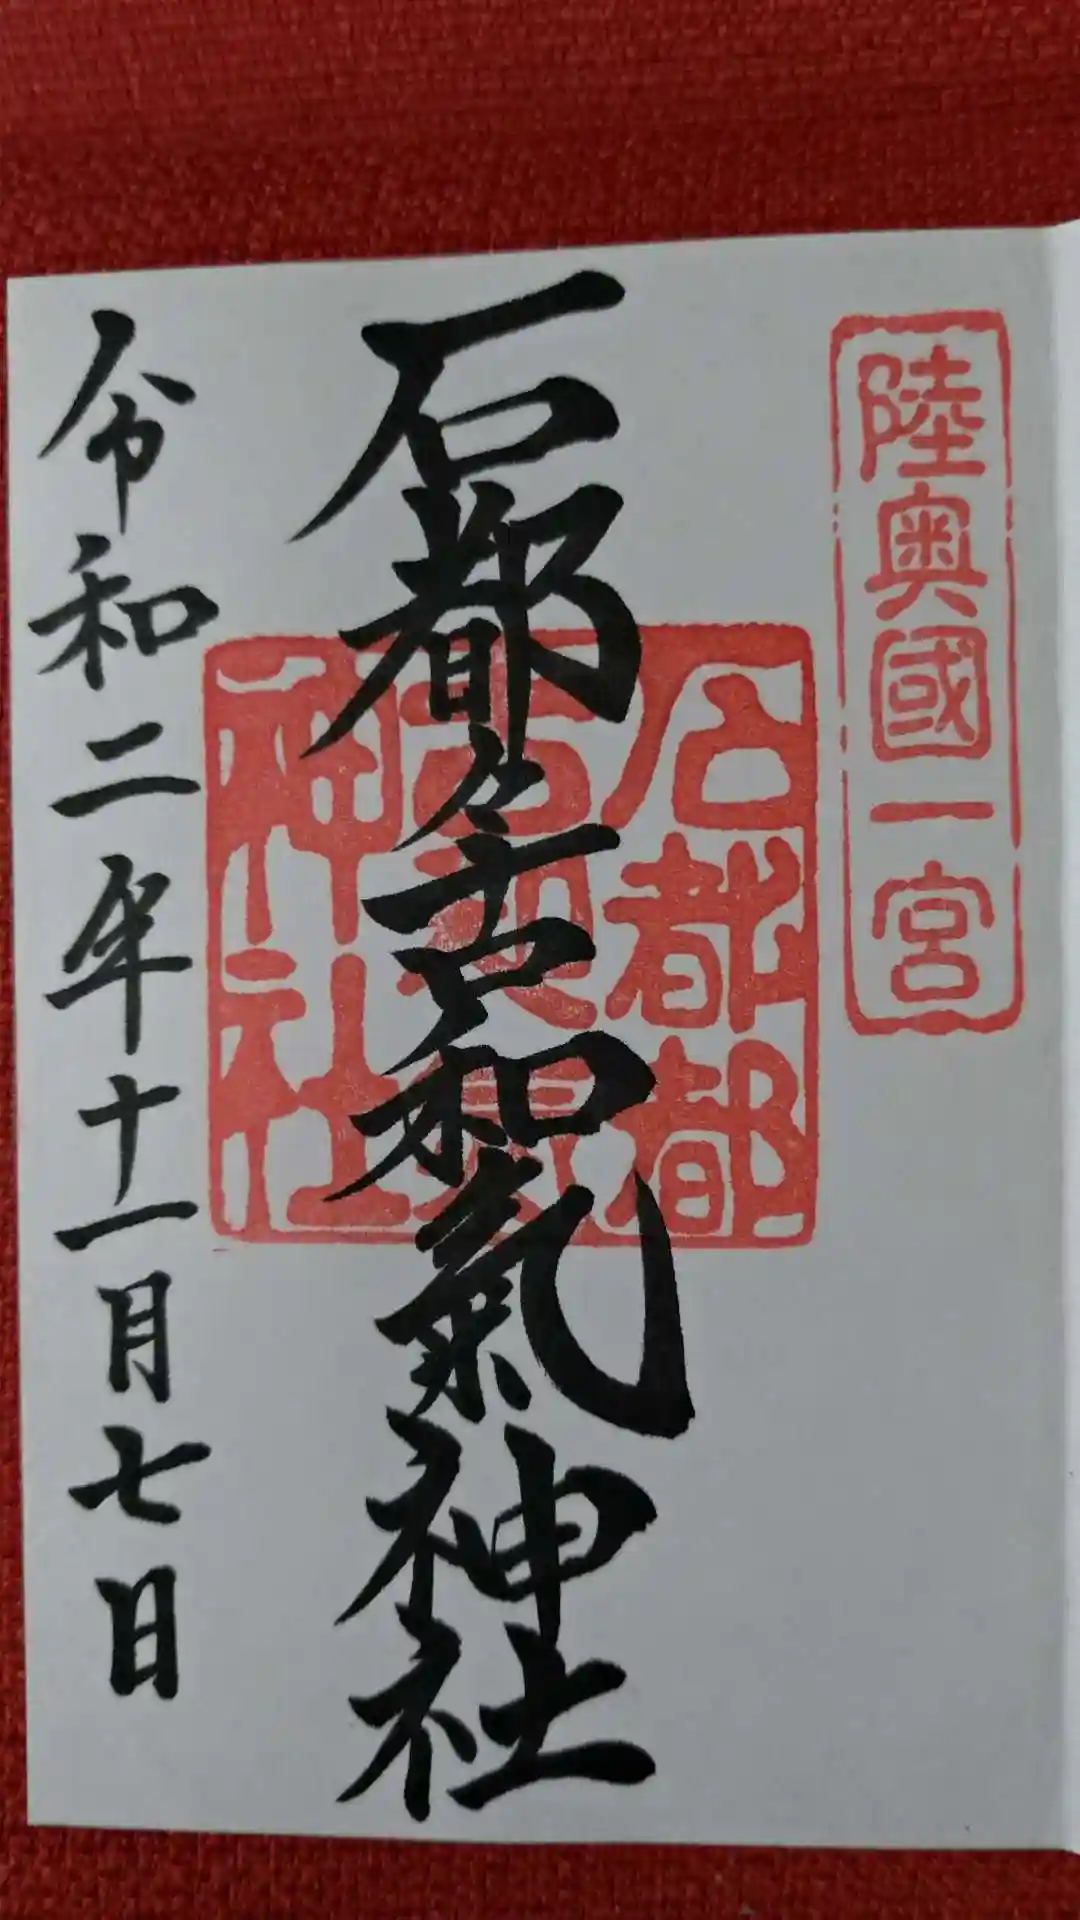 陸奥國一宮
石都々古和氣神社
石都都
古和氣
神社
令和二年十一月七日